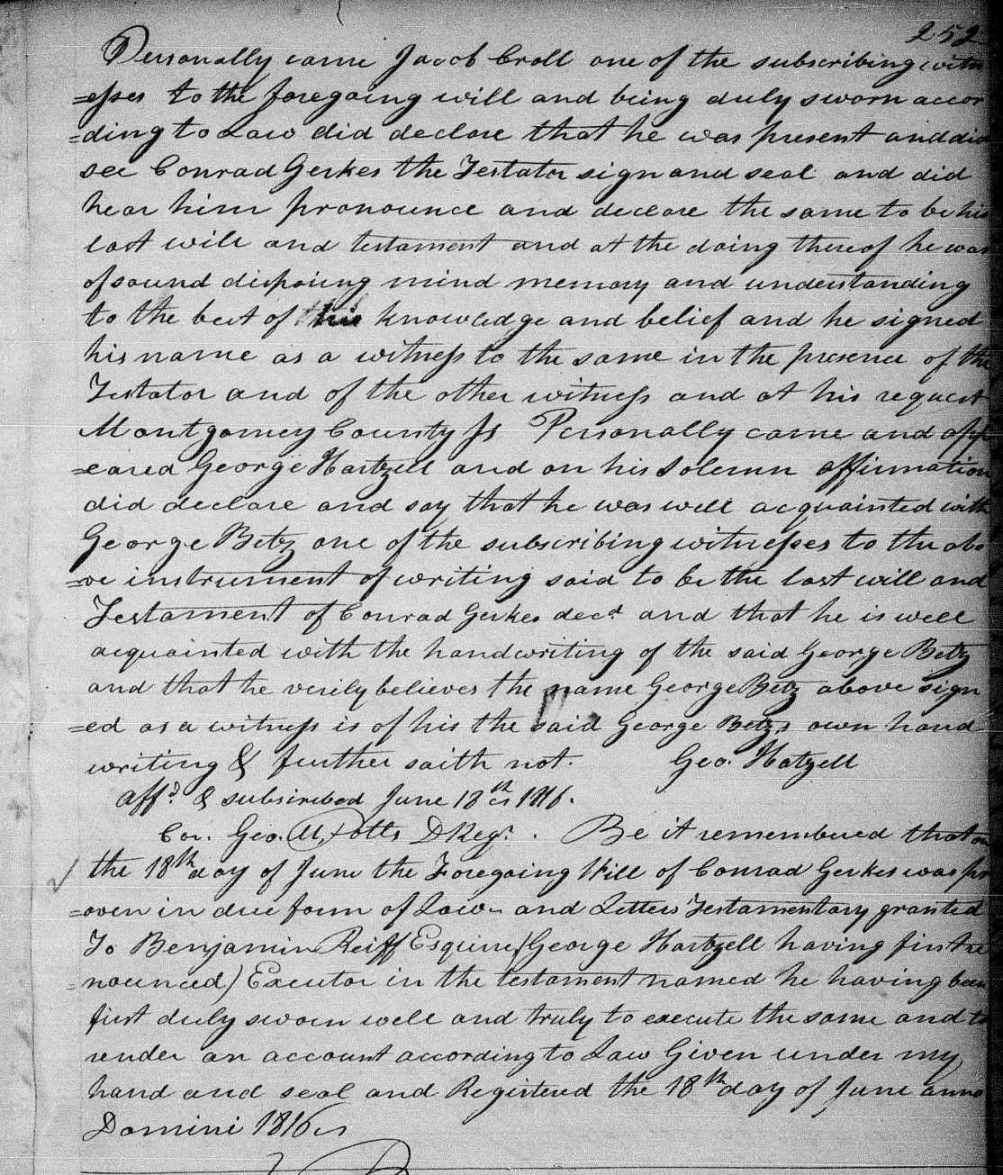 252
Personally came Jacob Croll one of the subscribing witn
=esses to the foregoing will and being duly sworn accor
=ding to Law did declare that he was present and did
see Conrad Gerkes the Testator sign and seal and did
hear him pronounce and declare the same to be his
last will and testament and at the doing thereof he was
of sound disposing mind memory and understanding
to the best of his knowledge and belief and he signed
his name as a witness to the same in the presence of the
Testator and of the other witness and at his request
Montgomery County Ss Personally came and app
=eared George Hartzell and on his solemn affirmation
did declare and say that he was well acquainted with
George Betz one of the subscribing witnesses to the abo
=ve instrument of writing said to be the last will and
Testament of Conrad Gerkes decd and that he is well
acquainted with the handwriting of the said George Betz
and that he verily believes the name George Betz above sign
=ed as a witness is of his the said George Betzs own hand
writing & further saith not. Geo. Hatzell
affd & subscribed June 18th 1816.
Cor. Geo. M. Potts DRegr. Be it remembered that on
the 18th day of June the Foregoing Will of Conrad Gerkes was pr
=oven in due form of Law and Letters Testamentary granted
To Benjamin Reiff Esquire (George Hartzell having first re
=nounced) Executor in the testament named he having been
first duly sworn well and truly to execute the same and to
render an account according to Law Given under my
hand and seal and Registered the 18th day of June anno
Domini 1816